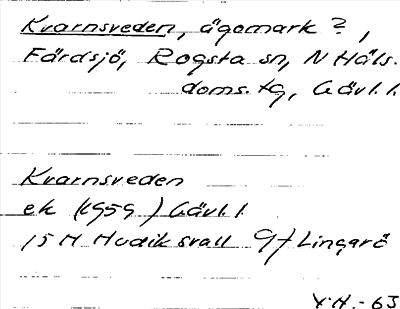 Kvarnsveden, ägomark?,
Färdsjö, Rogsta sn, N Häls.
doms. tg, Gävl. l.
Kvarnsveden
ek (1959) Gävl. l.
15 H Hudiksvall 9f Lingarö
Y.H.-63